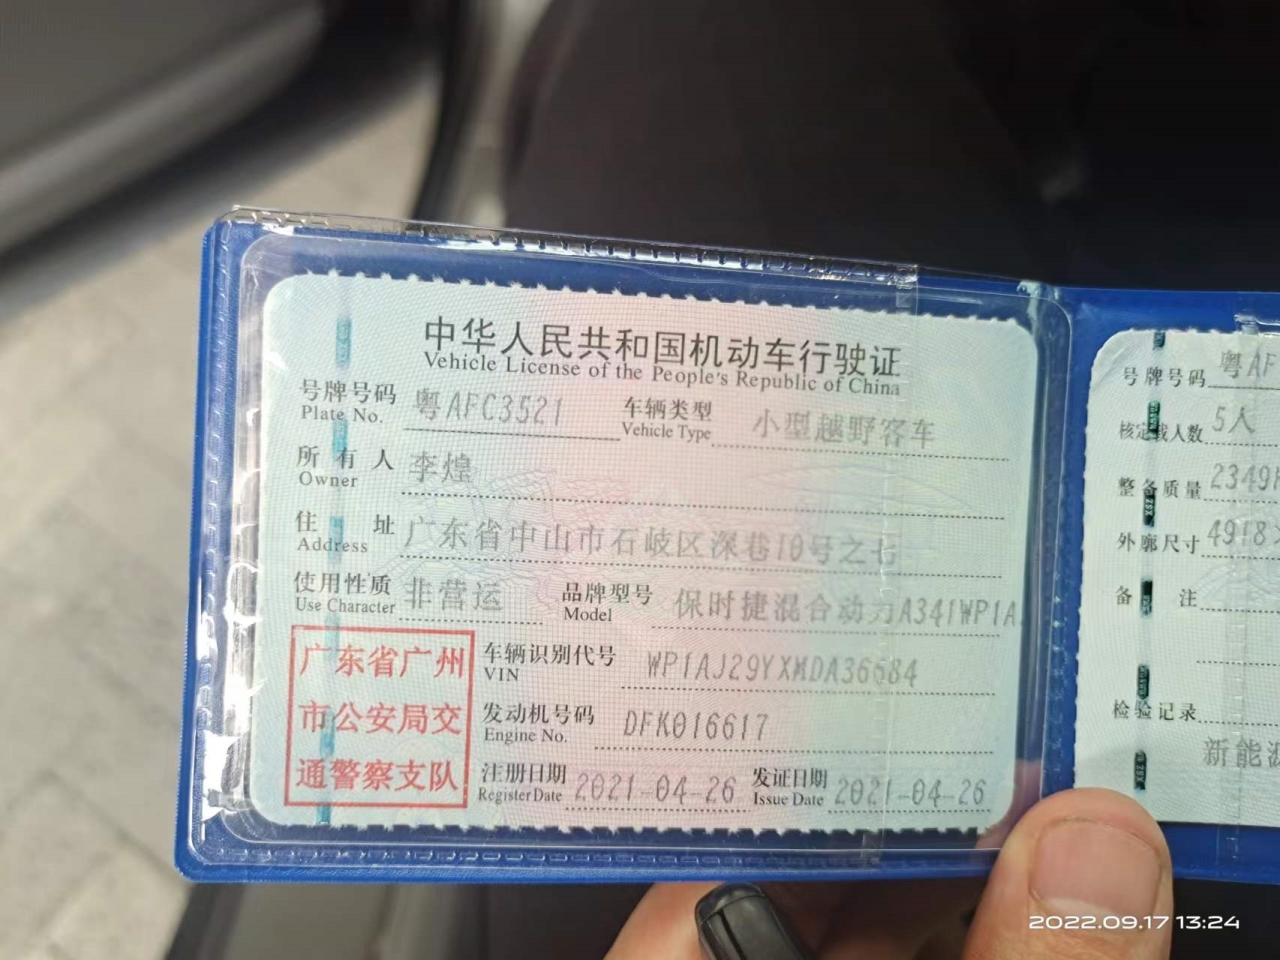 中华人民共和国机动车行驶证
Vehicle License of the People's Republic of China
号牌号码 粤AFC3521 车辆类型 小型越野客车
Plate No. Vehicle Type
所有人 李煌
Owner
住址 广东省中山市石岐区深巷10号之七
Address
使用性质 非营运 品牌型号 保时捷混合动力A341WP1A
Use Character Model
广东省广州
市公安局交
通警察支队
车辆识别代号 WP1AJ29YXMDA36684
VIN
发动机号码 DFK016617
Engine No.
注册日期 2021-04-26 发证日期 2021-04-26
Register Date Issue Date
号牌号码 粤AF
核定载人数 5人
整备质量 2349
外廓尺寸 4918
备注
检验记录
新能源
2022.09.17 13:24